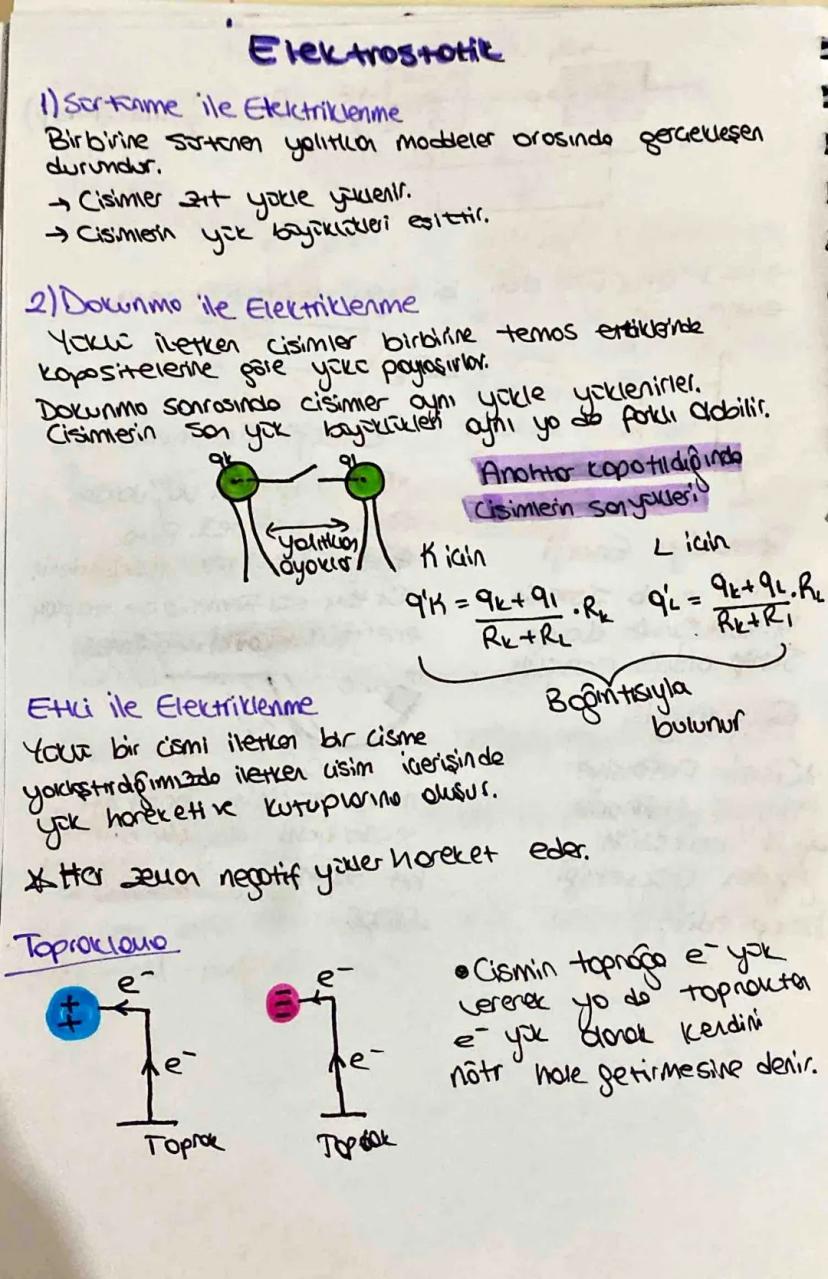 Elektrostatik
1) Sürtünme ile Elektriklenme
Birbirine sürtünen yalıtkan maddeler arasında gerçekleşen
durumdur.
→ Cisimler zıt yükle yüklenir.
→ Cisimlerin yük büyüklükleri eşittir.
2) Dokunma ile Elektriklenme
Yüklü iletken cisimler birbirine temas ettiklerinde
kapasitelerine göre yükü paylaşırlar.
Dokunma sonrasında cisimler aynı yükle yüklenirler.
Cisimlerin son yük büyüklükleri aynı ya da farklı olabilir.
qk qL
yalıtkan
ayaklar
Anahtar kapatıldığında
cisimlerin son yükleri
K için
q'K = qk + qL / Rk + RL . Rk
L için
q'L = qk + qL / Rk + RL . RL
Bağıntısıyla
bulunur
Etki ile Elektriklenme
Yüklü bir cismi iletken bir cisme
yaklaştırdığımızda iletken cisim içerisinde
yük hareketi ve kutuplarına oluşur.
* Her zaman negatif yükler hareket eder.
Topraklama
++ e⁻
e⁻
Toprak
e⁻
e⁻
Toprak
• Cismin toprağa e⁻ yük
vererek ya da topraktan
e⁻ yük alarak kendini
nötr hale getirmesine denir.